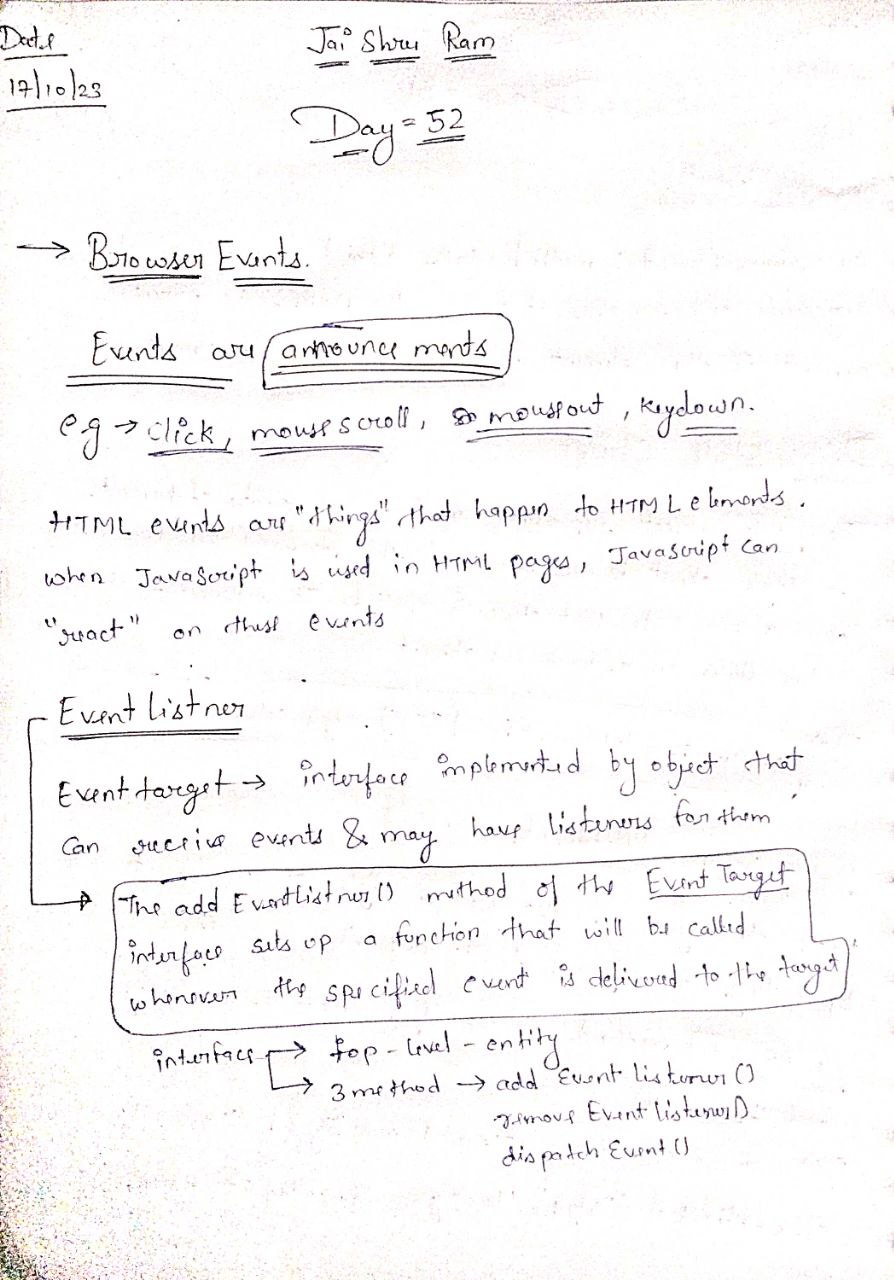 Date
Jai Shree Ram
17/10/23
Day = 52
→ Browser Events.
Events are announce ments
e.g → click, mouse scroll, mouseout, keydown.
HTML events are "things" that happen to HTML elements.
when JavaScript is used in HTML pages, JavaScript can
"react" on these events
Event listner
Event target → interface implemented by object that
can receive events & may have listeners for them
The add Eventlistner() method of the Event Target
interface sets up a function that will be called
whenever the specified event is delivered to the target
interface → top-level-entity
→ 3 method → add Event listener()
remove Event listener()
dispatch Event()